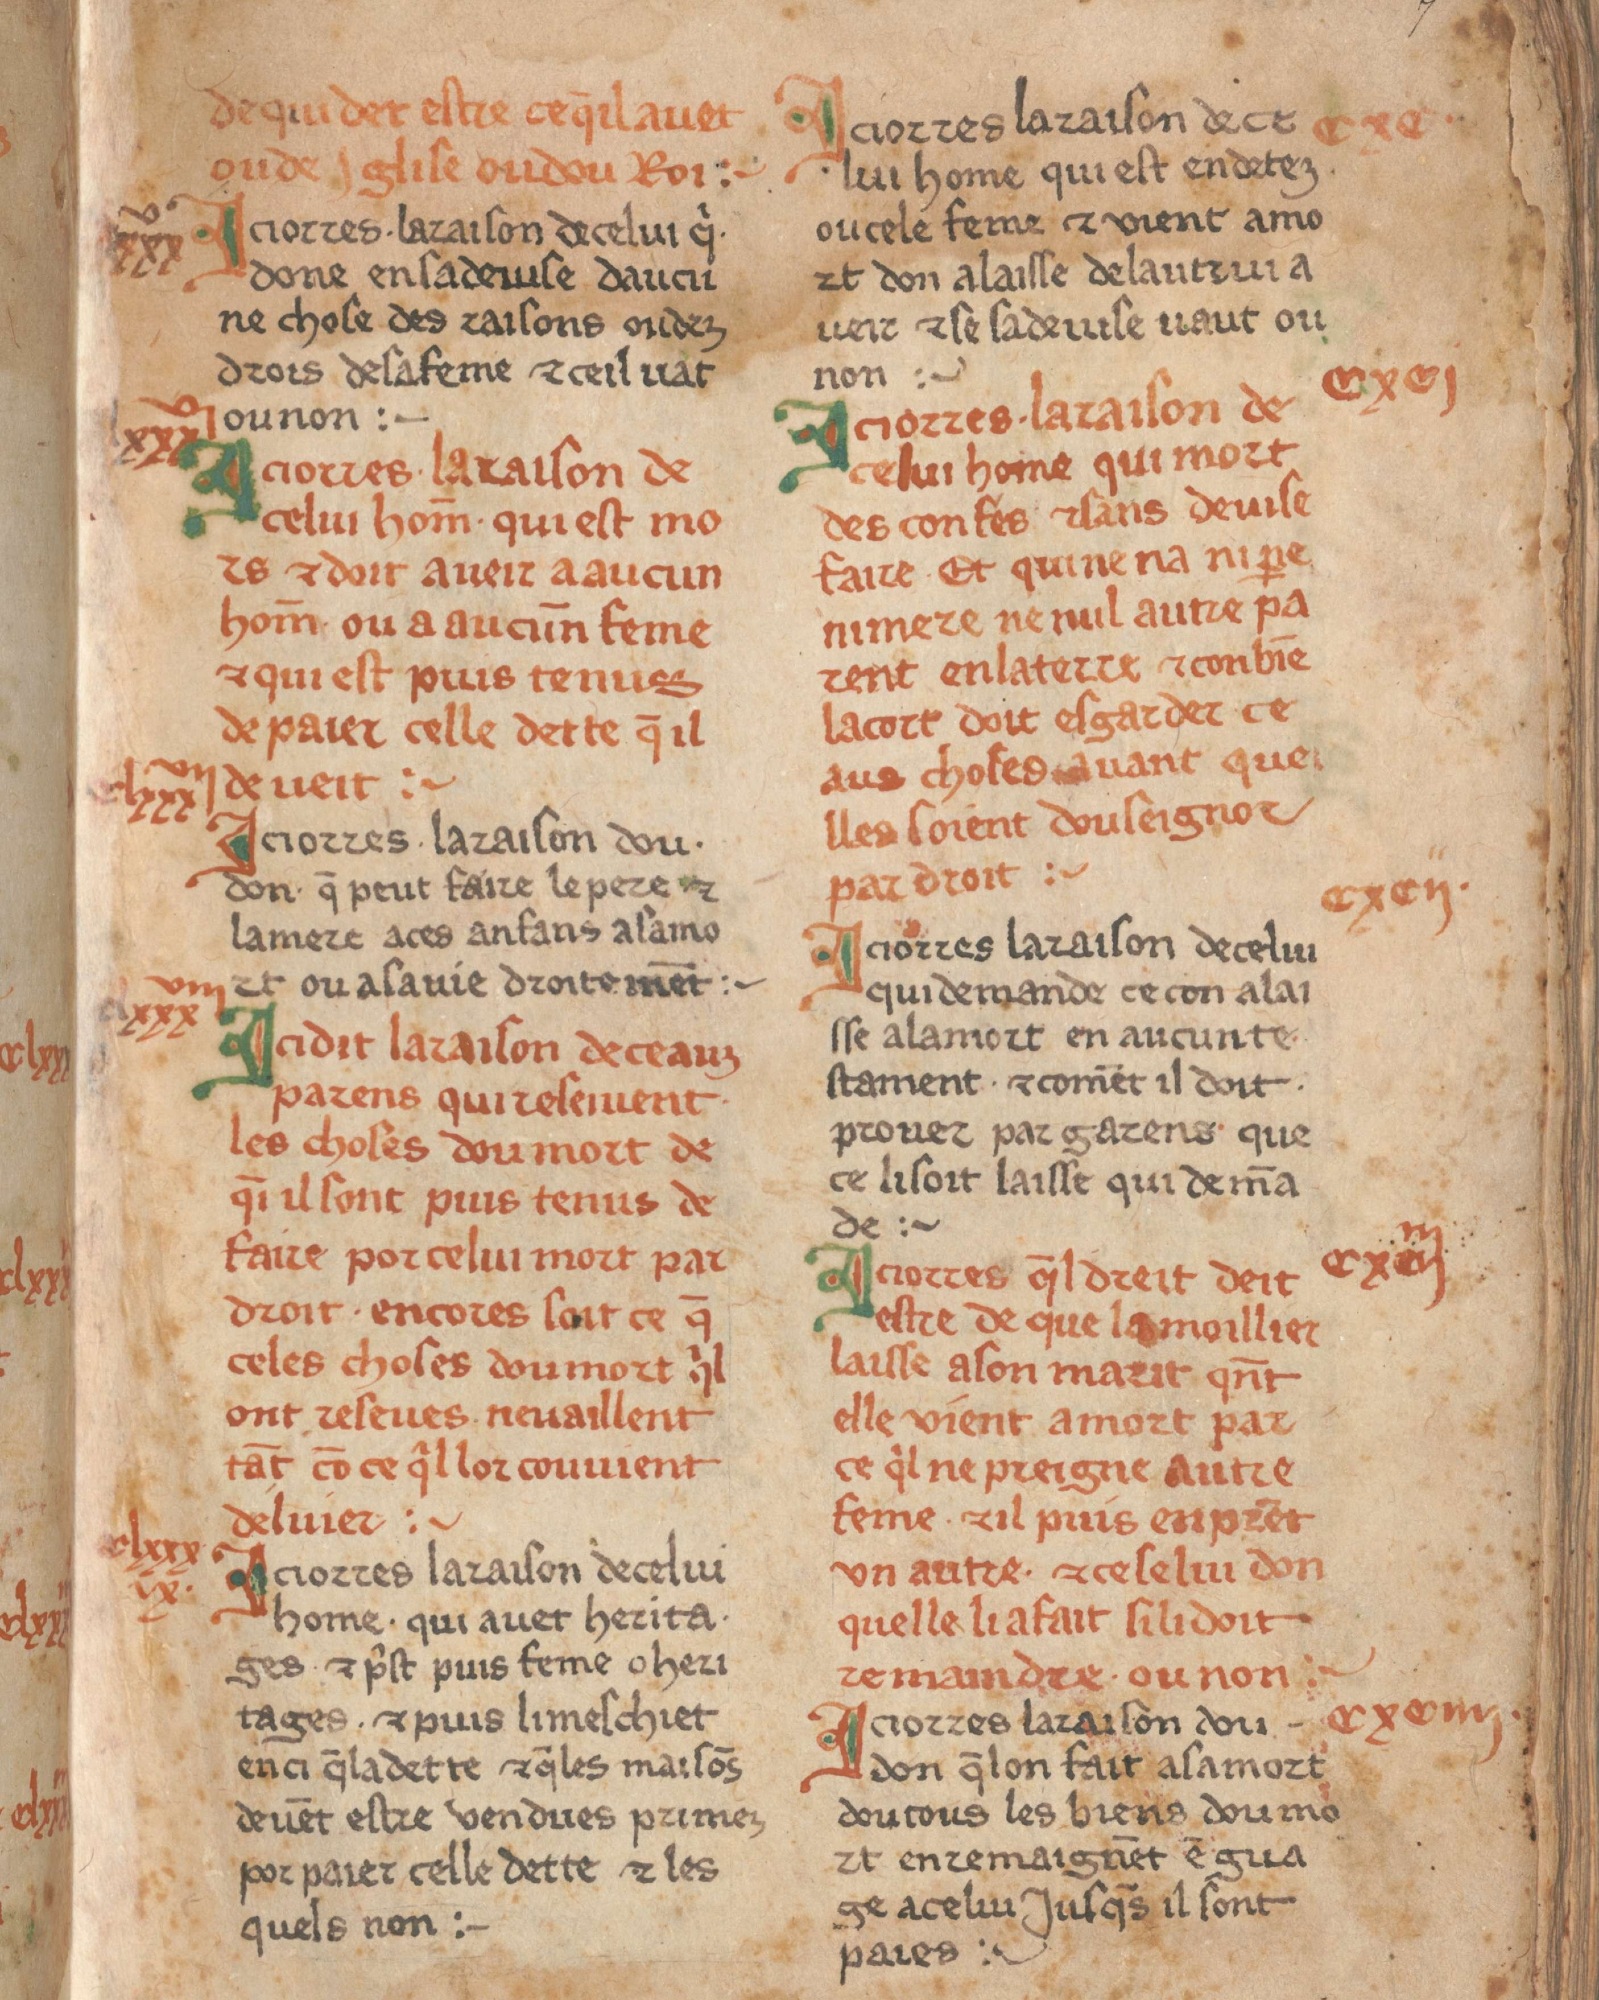 de qui det estre ce q̄ il auet
ou de yglise ou dou Roi :~
v.
lxxx
Jci orres · la raison de celui q̇ ·
done en sa deuise daucu
ne chose des raisons ou dez
drois de sa feme ⁊ ce il uat
ou non :~
vj
lxxx
Jci orres · la raison de
celui hom̄ · qui est mo
rs ⁊ doit aueir a aucun
hom̄ · ou a aucun̄ feme
⁊ qui est puis tenus
de paier celle dette q̄ il
deueit :~
vij
clxxx
Jci orres · la raison dou ·
don · q̄ peut faire le pere ⁊
la mere a ces anfans a sa mo
rt ou a sa uie droitemēt :~
viiij
clxxx
Jci dit la raison de ceauz
parens qui reseiuent ·
les choses dou mort de
q̄i il sont puis tenus de
faire por celui mort par
droit · encores soit ce q̄
celes choses dou mort q̇l
ont reseues · ne uaillent
tāt cō ce q̇l lor couuient
deliuier :~
clxxx
ix ·
Jci orres la raison de celui
home · qui auet herita ·
ges · ⁊ p̄st puis feme o heri
tages · ⁊ puis li meschiet
enci q̄ la dette ⁊ q̄ les maisōs
deuēt estre vendues primez
por paier celle dette ⁊ les
quels non :~
Jci orres la raison de ce
lui home qui est en detez ·
ou cele feme ⁊ vient a mo
rt don a laisse de lautrui a
ueir ⁊ se sa deuise uaut ou
non :~
cxc ·
Jci orres · la raison de
celui home qui mort
des confes ⁊ sans deuise
faire · Et qui ne na ni p̲e
ni mere ne nul autre pa
rent en la terre ⁊ con biē
la cort doit esgarder ce
aus choses auant que
lles soient dou seignor
par droit :~
cxcj
Jci orres la raison de celui
qui demande ce con a lai
sse a la mort en aucun te
stament · ⁊ comēt il doit ·
prouer par garens · que
ce li soit laisse qui dem̄a
de :~
cxcij ·
Jci orres q̄l dreit deit
estre de que la moillier
laisse a son marit qn̄t
elle vient a mort par
ce q̇l ne preigne autre
feme · ⁊ il puis en prēt
vn autre · ⁊ ce se lui don
quelle li a fait si li doit
remaindre · ou non :~
cxciij
Jci orres la raison dou -
don q̄ lon fait a sa mort
dou tous les biens dou mo
rt en remaignēt ē gua
ge a celui Jusq̄s il sont
paies :~
cxciiij ·